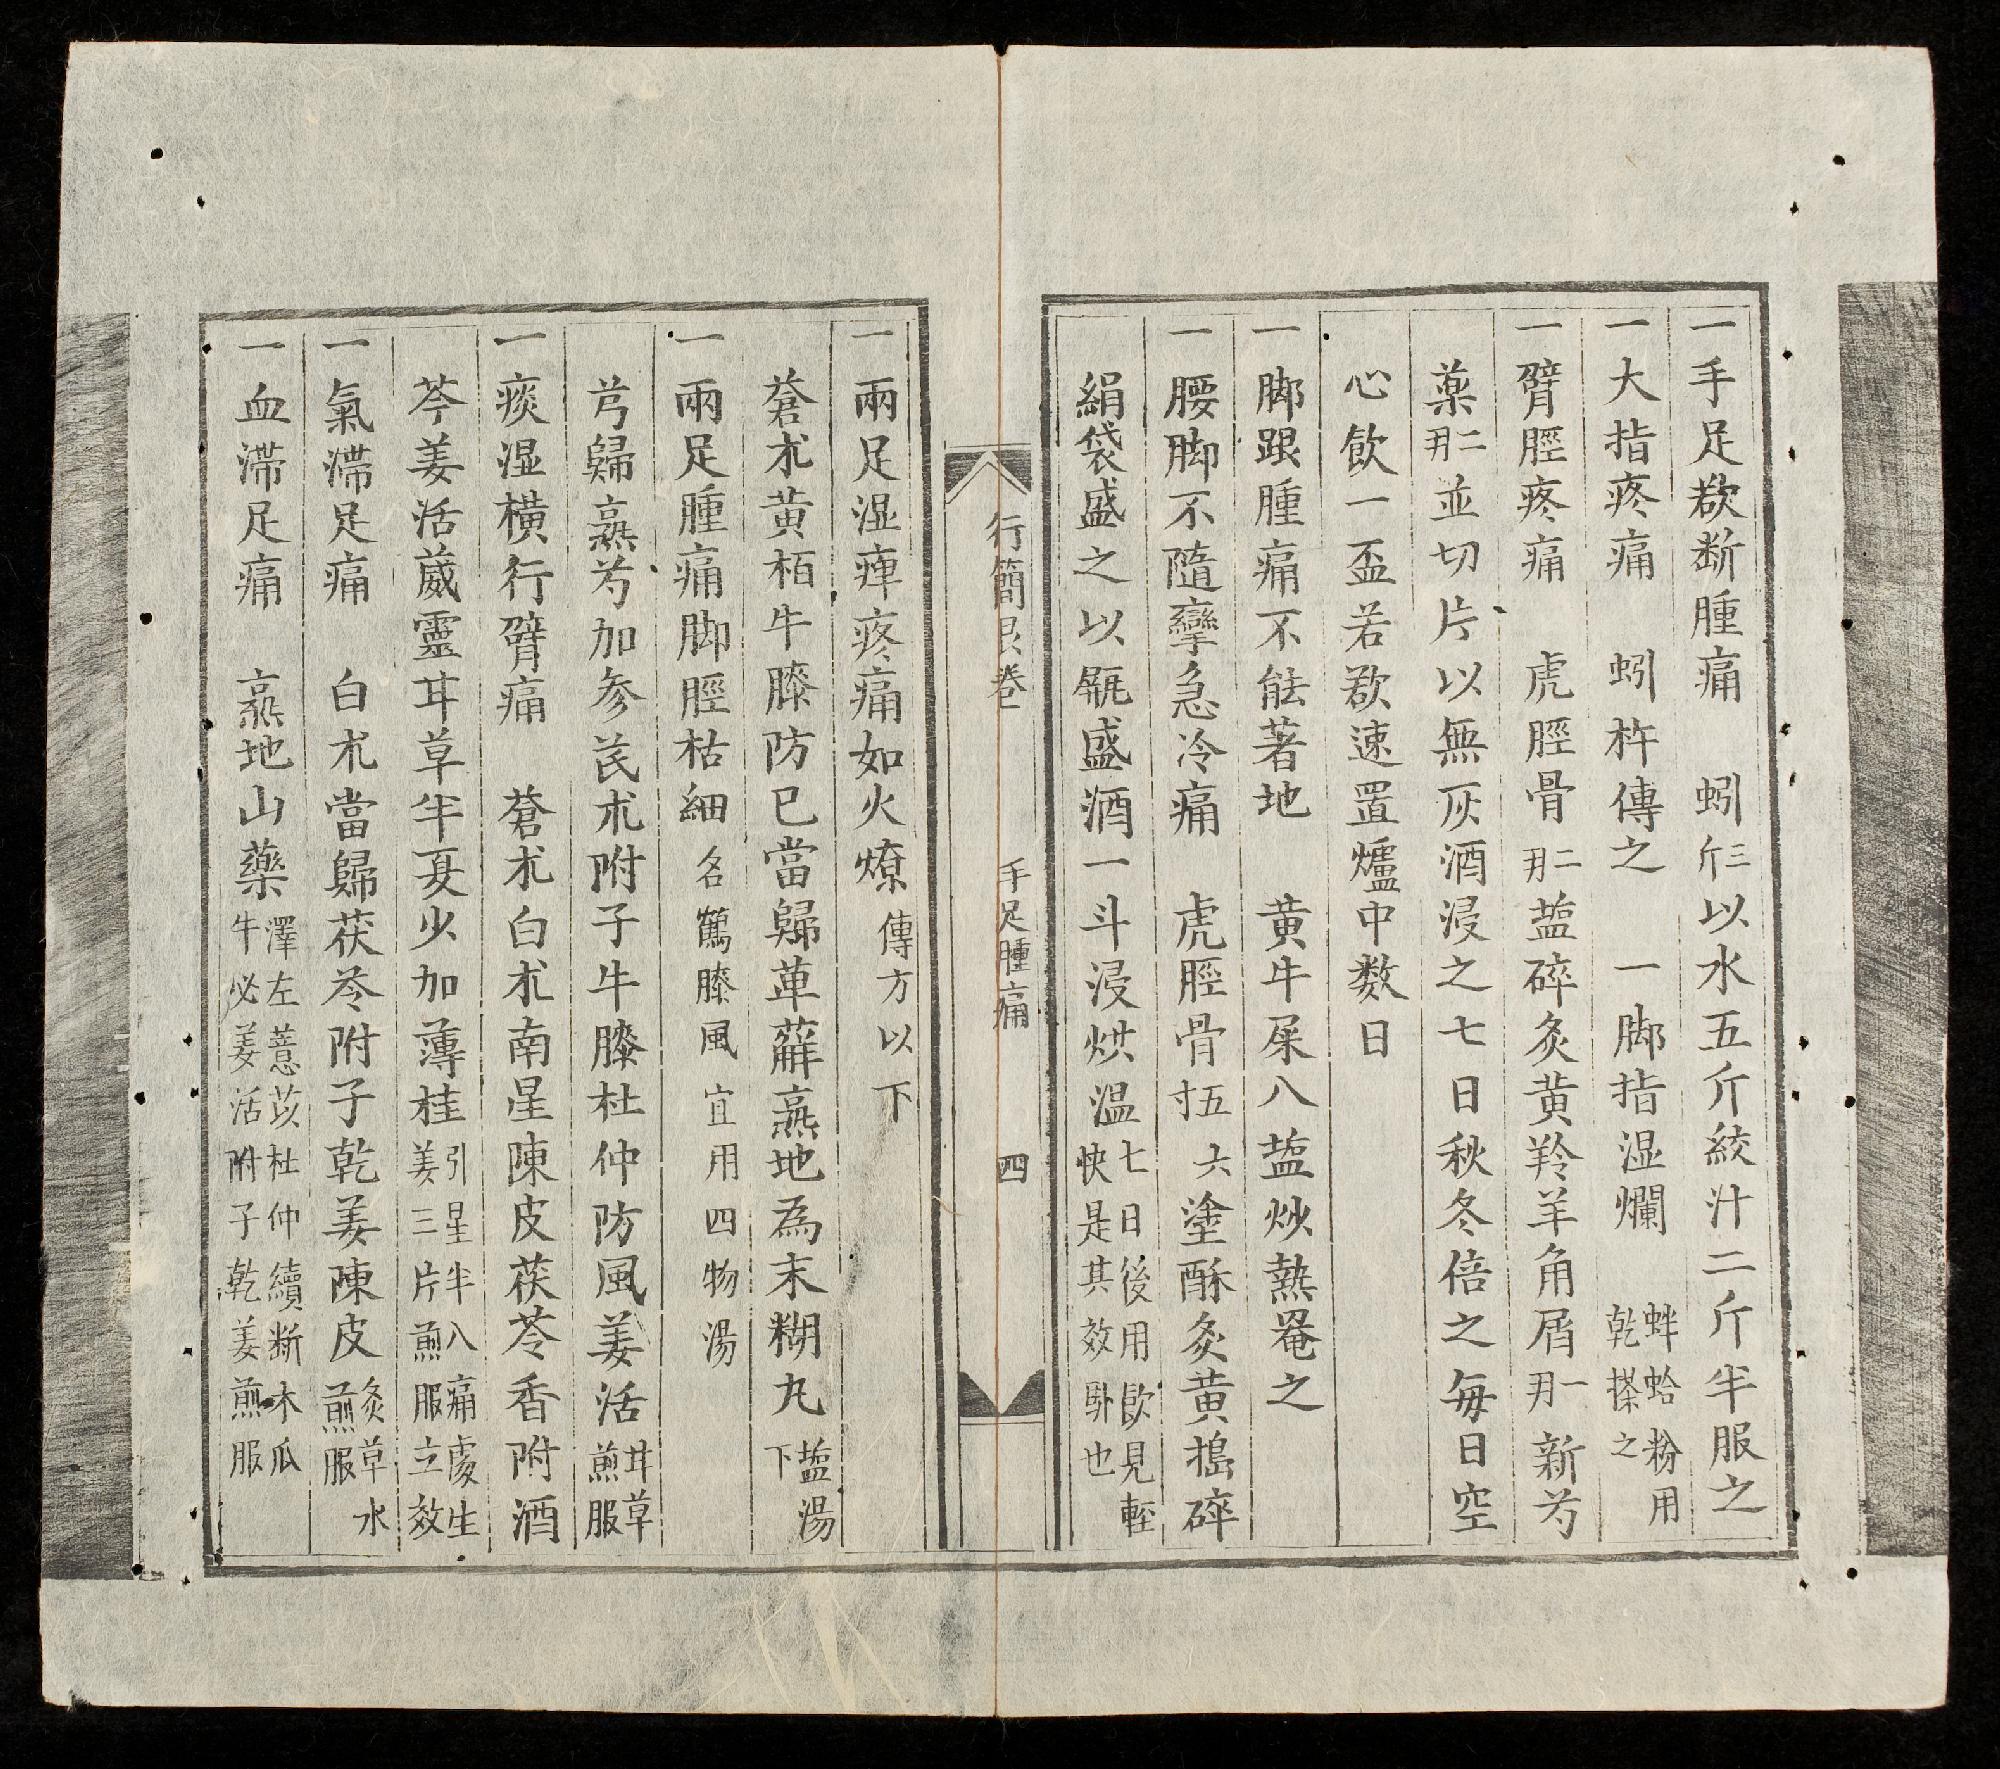 一手足欲断腫痛　蚓三斤以水五斤絞汁二斤半服之
一大指疼痛　蚓杵傅之　一脚指湿爛　蚌蛤粉用乾搽之
一臂脛疼痛　虎脛骨二刄塩碎灸黄羚羊角屑一刄新芍
薬二刄並切片以無灰酒浸之七日秋冬倍之每日空
心飲一盃若欲速置爐中数日
一脚跟腫痛不能著地　黄牛屎八塩炒熱罨之
一腰脚不隨攣急冷痛　虎脛骨五寸六塗酥灸黄搗碎
絹袋盛之以甁盛酒一斗浸烘温七日後用歐見軽快是其效卧也
行簡 卷一　手足腫痛　四
一兩足湿痺疼痛如火燎傳方以下
蒼朮黄栢牛膝防已當歸萆薢熹地為末糊丸塩湯下
一兩足腫痛脚脛枯細名鶴膝風宜用四物湯
芎歸熹芍加参芪朮附子牛膝杜仲防風姜活甘草煎服
一痰湿横行臂痛　蒼朮白朮南星陳皮茯苓香附酒
芩姜活葳靈甘草半夏少加薄桂引星半八痛處生姜三片煎服立效
一氣滯足痛　白朮當歸茯苓附子乾姜陳皮灸草水煎服
一血滯足痛　熹地山藥澤左薏苡杜仲續断木瓜牛必姜活附子乾姜煎服